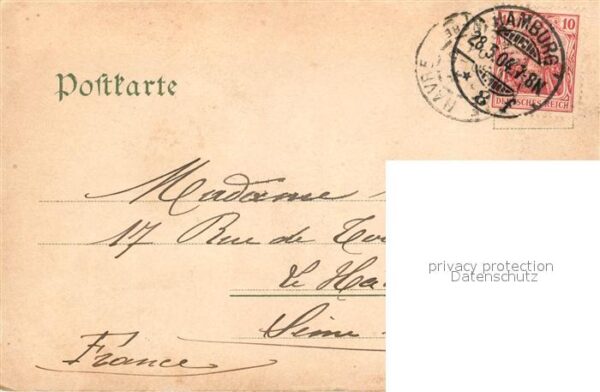 10
HAMBURG
28.5.04.7-8N
* 1 8
DEUTSCHES REICH
HAVRE
Postkarte
Madame
17 Rue de
Le Ha
Seine
France
privacy protection
Datenschutz